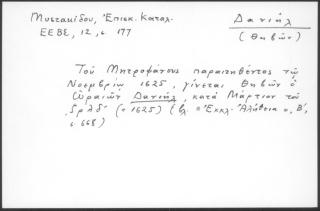 Μυστακίδου, Ἐπισκ. Καταλ.
ΕΕΒΣ, 12, σ. 177
Δανιήλ
(Θηβῶν)
Τοῦ Μητροφάνους παραιτηθέντος τῷ
Νοεμβρίῳ 1625, γίνεται Θηβῶν ὁ
Ὠραιῶν Δανιήλ, κατὰ Μάρτιον τοῦ
͵ζρλδ΄ (= 1625) (βλ. «Ἐκκλ. Ἀλήθεια», Β΄,
σ. 668)